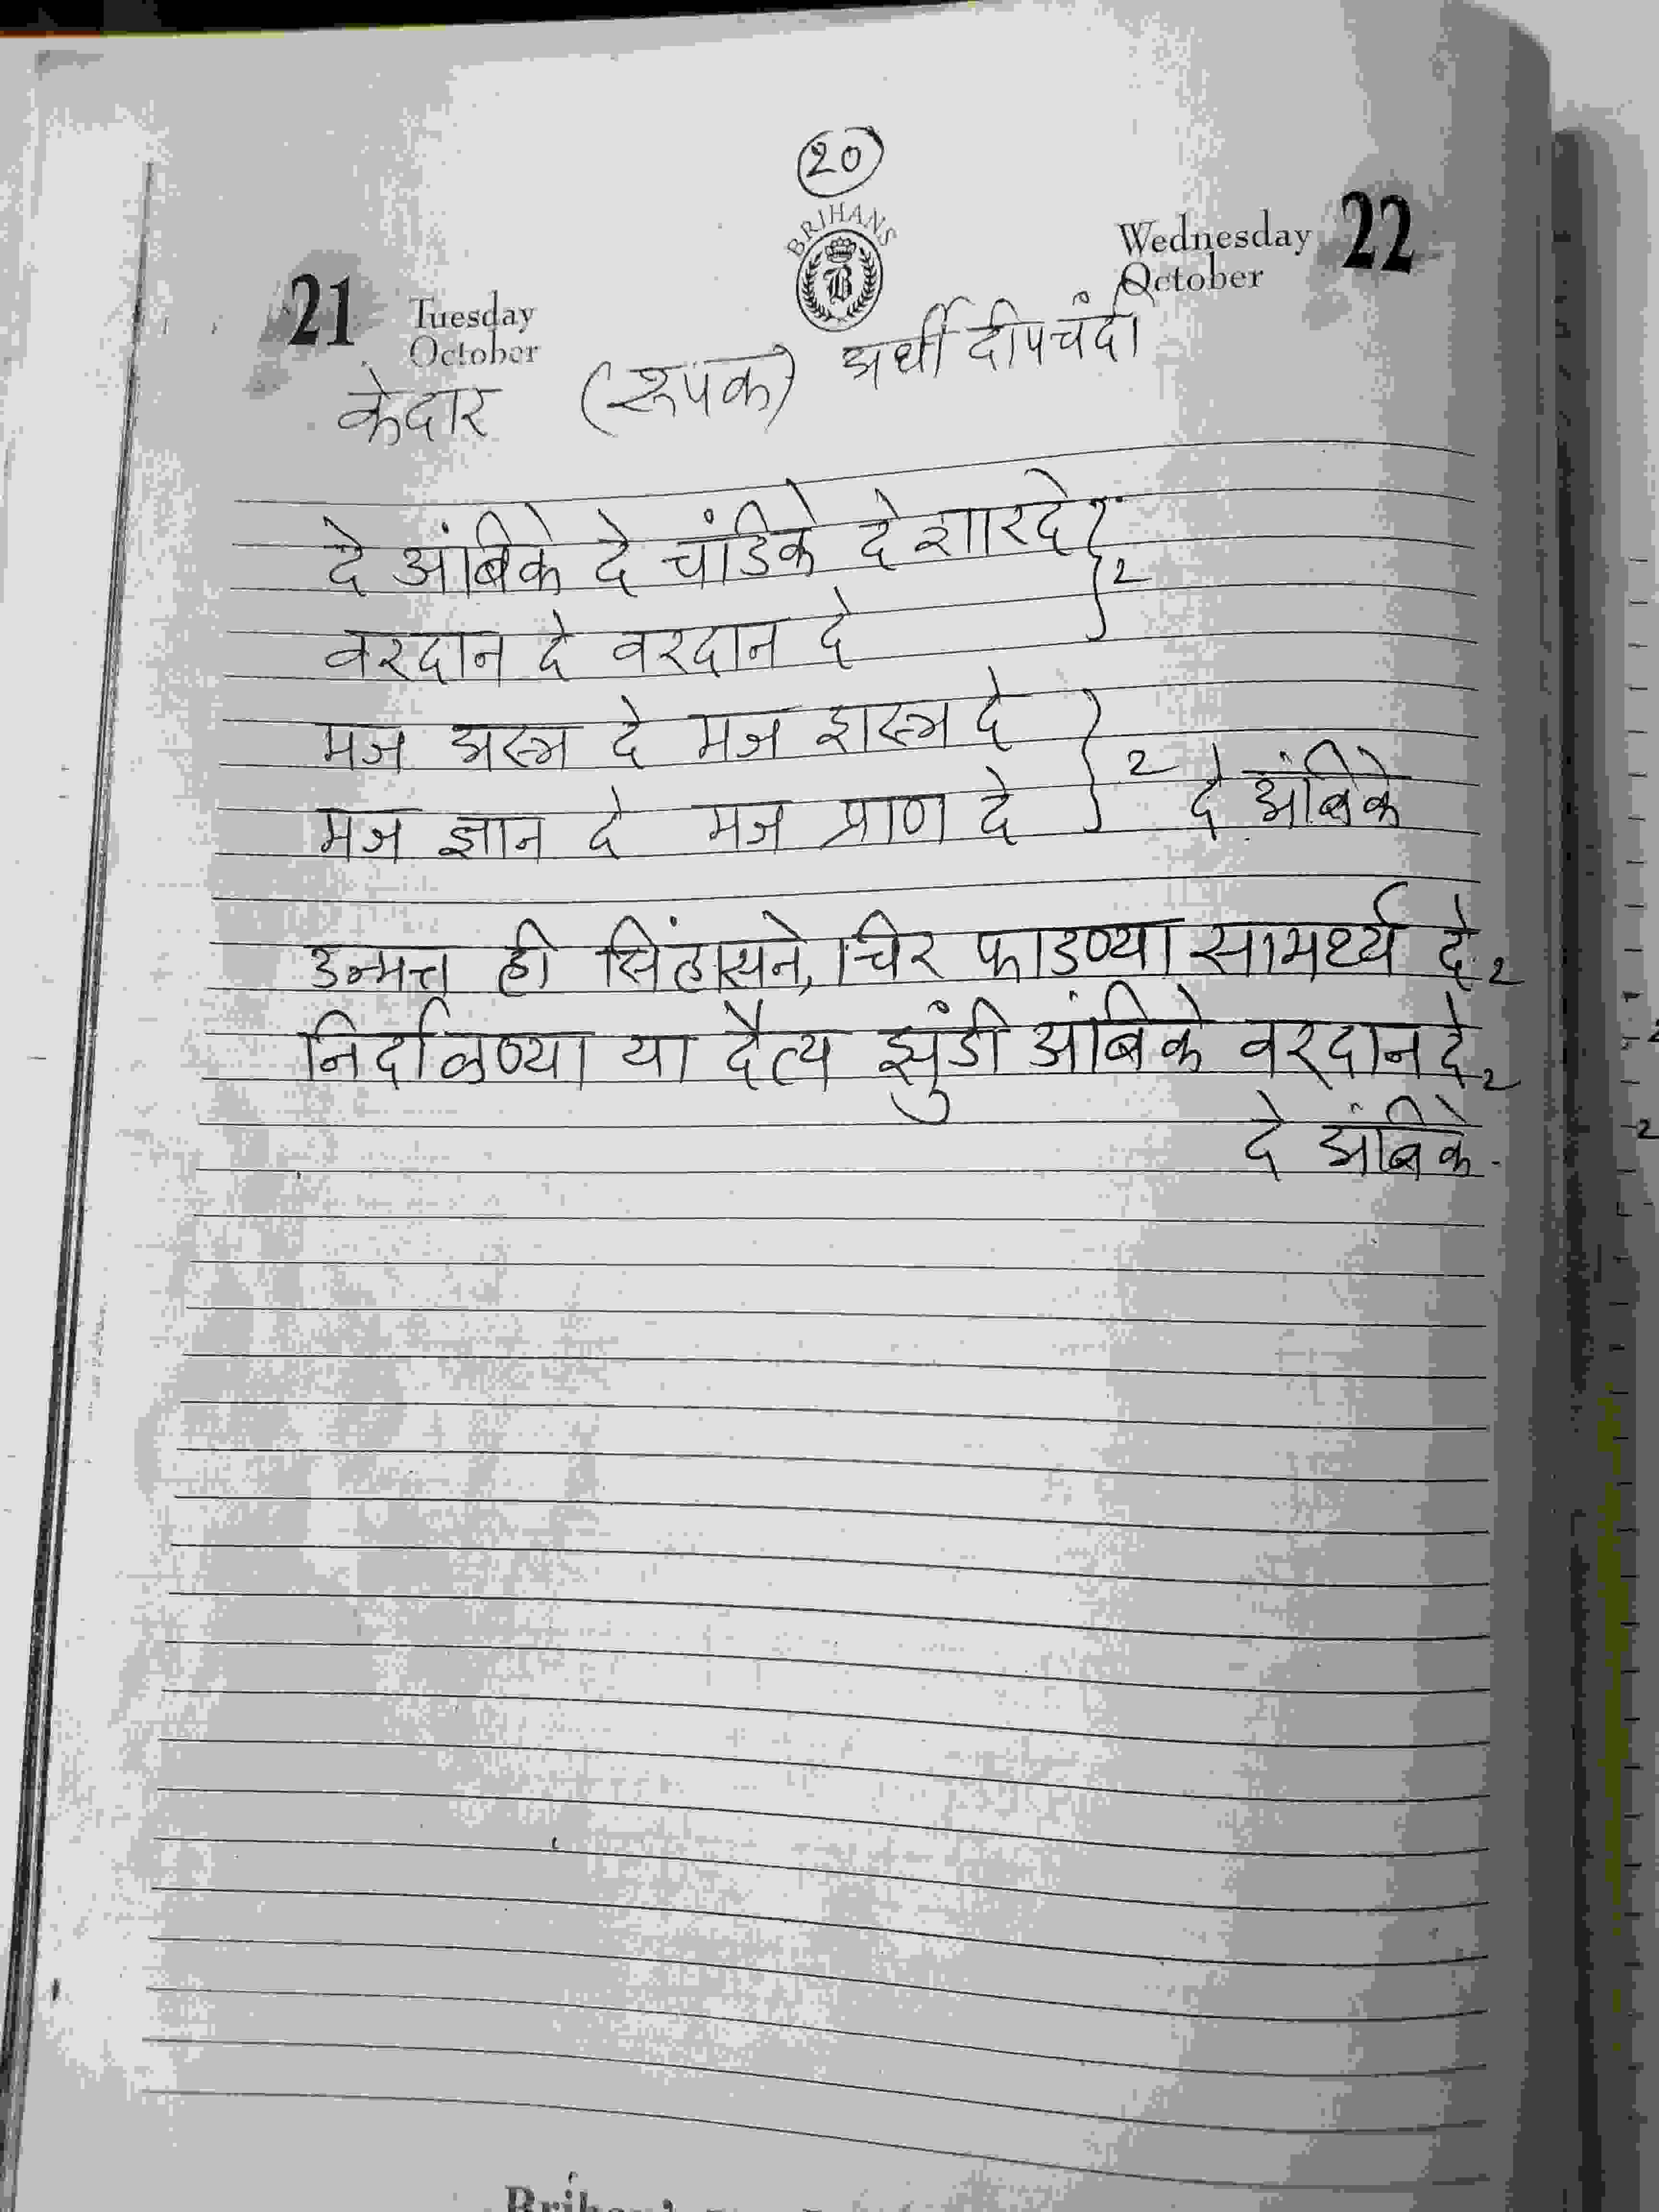 20
BRIHANS
B
21 Tuesday October
Wednesday October 22
केदार (रूपक) अर्धी दीपचंदी
दे अंबिके दे चंडिके दे शारदे
वरदान दे वरदान दे } 2
मज अस्त्र दे मज शस्त्र दे
मज ज्ञान दे मज प्राण दे } 2 दे अंबिके
उन्मत्त ही सिंहासने, चिर फाडण्या सामर्थ्य दे 2
निर्दालण्या या दैत्य झुंडी अंबिके वरदान दे 2
दे अंबिके